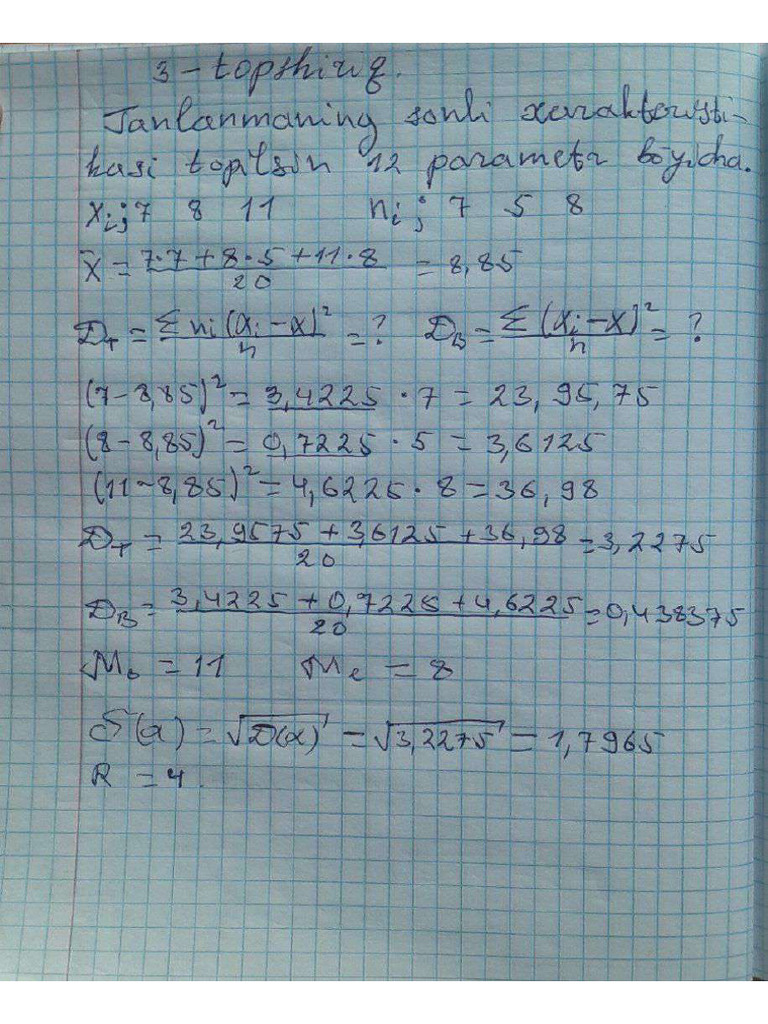 3 - topshiriq.
Tanlanmaning sonli xarakteristi-
kasi topilsin 12 parametr bo'yicha.
Xi; 7 8 11 ni; 7 5 8
X̄ = (7·7 + 8·5 + 11·8)/20 = 8,85
DT = Σ ni (xi - x)²/n = ? DB = Σ (xi - x)²/n = ?
(7 - 8,85)² = 3,4225 · 7 = 23,95,75
(8 - 8,85)² = 0,7225 · 5 = 3,6125
(11 - 8,85)² = 4,6225 · 8 = 36,98
DT = (23,9575 + 3,6125 + 36,98)/20 = 3,2275
DB = (3,4225 + 0,7225 + 4,6225)/20 = 0,438375
Mo = 11 Me = 8
σ(x) = √D(x) = √3,2275 = 1,7965
R = 4.